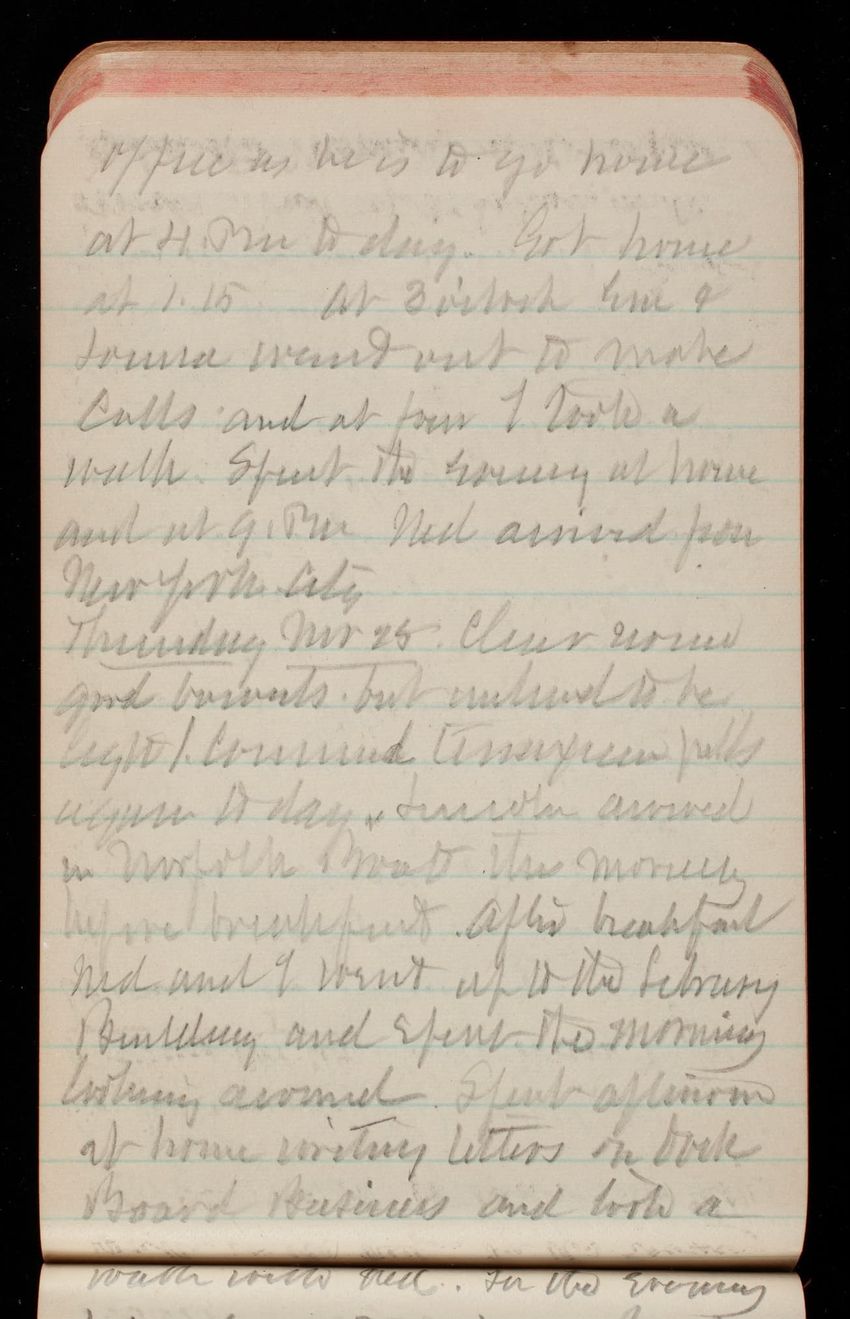 office as he is to go home
at 4. Pm to day. Got home
at 1.15 At 3 o'clock Eva &
went out to make
Calls and at four I took a
walk. Spent the evening at home
and at 9. Pm Ned arrived from
New York City
Thursday Nov 25. Clear
good but to be
light
again to day. Lincoln arrived
in Norfolk Boat this morning
before breakfast. After breakfast
Ned and I went up to the Library
Building and spent the morning
looking around. Spent afternoon
at home writing letters on Dock
Board Business and took a
walk with Ned. In the evening